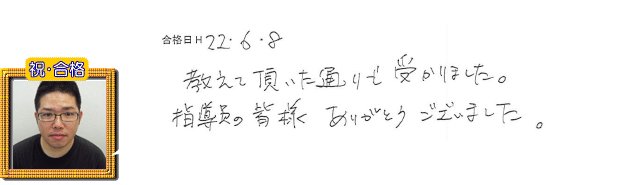 合格日H 22.6.8
祝・合格
教えて頂いた通りで受かりました。
指導員の皆様 ありがとうございました。